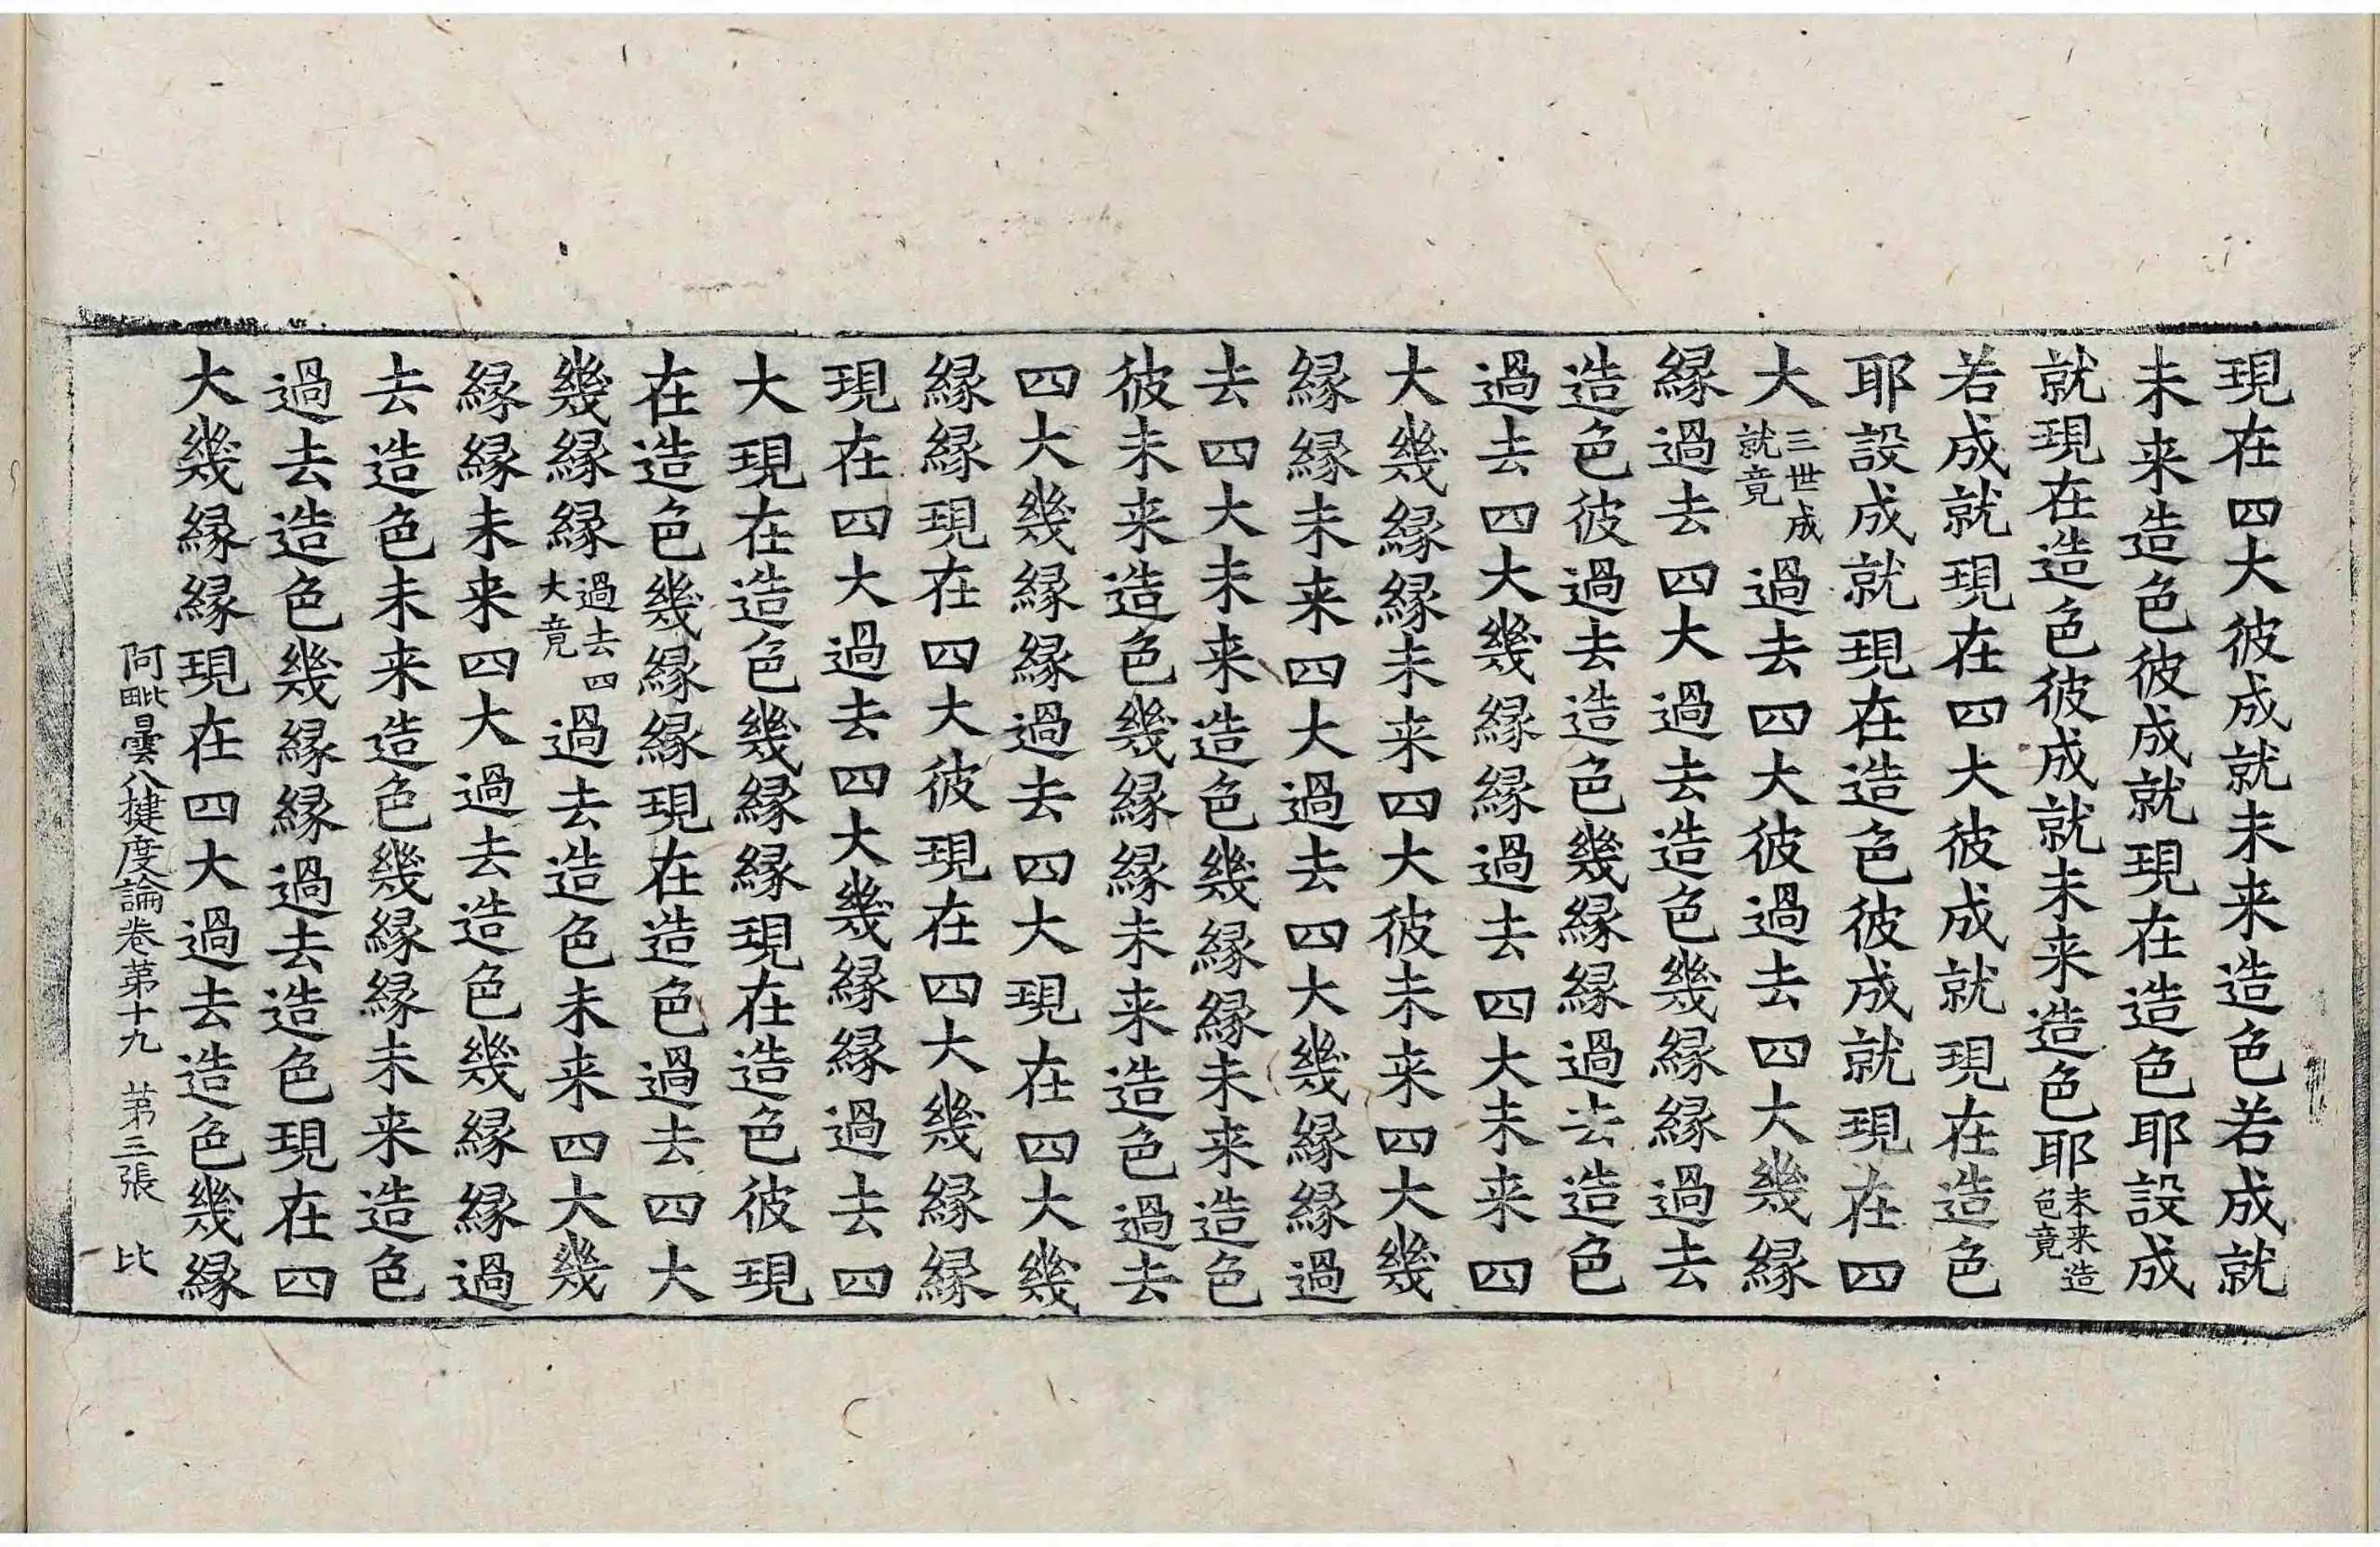 現在四大彼成就未来造色若成就
未来造色彼成就現在造色耶設成
就現在造色彼成就未来造色耶未来造色竟
若成就現在四大彼成就現在造色
耶設成就現在造色彼成就現在四
大三世成就竟過去四大彼過去四大幾緣
緣過去四大過去造色幾緣緣過去
造色彼過去造色幾緣緣過去造色
過去四大幾緣緣過去四大未来四
大幾緣緣未来四大彼未来四大幾
緣緣未来四大過去四大幾緣緣過
去四大未来造色幾緣緣未来造色
彼未来造色幾緣緣未来造色過去
四大幾緣緣過去四大現在四大幾
緣緣現在四大彼現在四大幾緣緣
現在四大過去四大幾緣緣過去四
大現在造色幾緣緣現在造色彼現
在造色幾緣緣現在造色過去四大
幾緣緣過去四大竟過去造色未来四大幾
緣緣未来四大過去造色幾緣緣過
去造色未来造色幾緣緣未来造色
過去造色幾緣緣過去造色現在四
大幾緣緣現在四大過去造色幾緣
阿毗曇八揵度論卷第十九 第三張 比